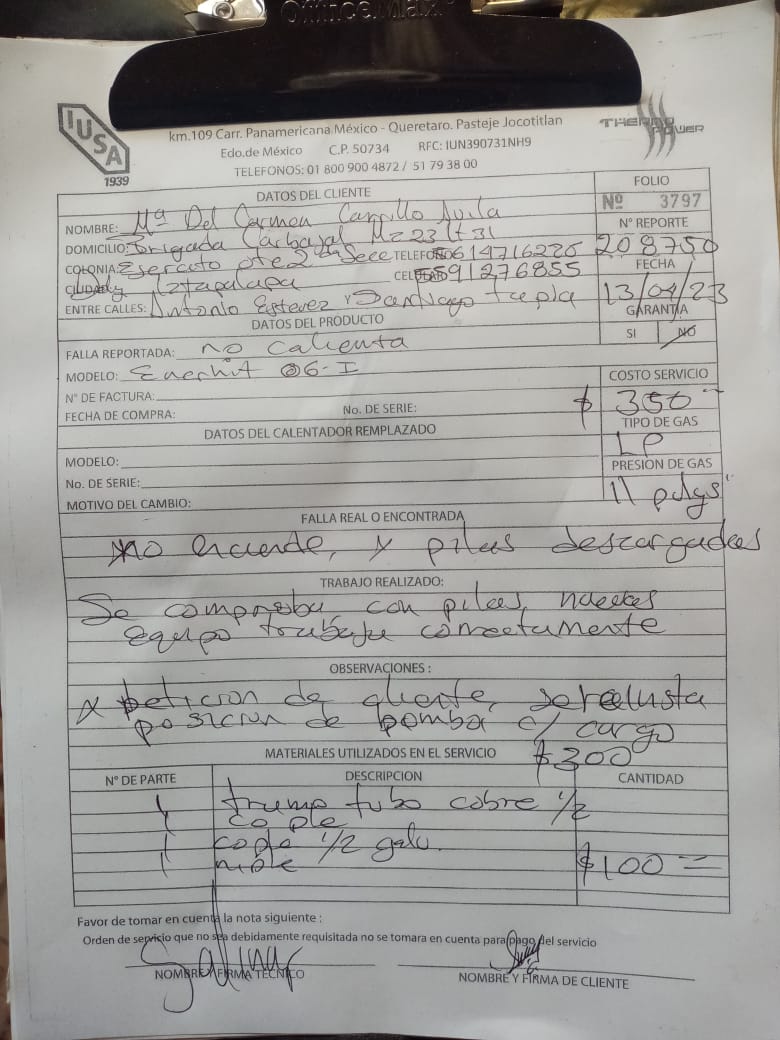 OfficeMax
IUSA
1939
km.109 Carr. Panamericana México - Queretaro. Pasteje Jocotitlan
Edo.de México C.P. 50734 RFC: IUN390731NH9
TELEFONOS: 01 800 900 4872 / 51 79 38 00
THERMO POWER
DATOS DEL CLIENTE
FOLIO
Nº 3797
NOMBRE: Mª Del Carmen Carrillo Avila
Nº REPORTE
208750
DOMICILIO: Brigada Carbajal Mz 23 lt 31
COLONIA: Esercito Ote 2 TELEFONO 5614716225
FECHA
13/04/23
Iztapalapa CELULAR 5591276855
ENTRE CALLES: Antonio Estevez y Santiago
GARANTIA
SI NO
DATOS DEL PRODUCTO
FALLA REPORTADA: no calienta
MODELO: 06-I
COSTO SERVICIO
$ 350
N° DE FACTURA:
FECHA DE COMPRA: No. DE SERIE:
TIPO DE GAS
LP
DATOS DEL CALENTADOR REMPLAZADO
MODELO:
PRESION DE GAS
11 pulgs"
No. DE SERIE:
MOTIVO DEL CAMBIO:
FALLA REAL O ENCONTRADA
no enciende, y pilas descargadas
TRABAJO REALIZADO:
Se comprueba con pilas nuevas
Equipo trabaja correctamente
OBSERVACIONES :
A peticion de cliente, se reajusta
posicion de bomba c/ cargo
$300
MATERIALES UTILIZADOS EN EL SERVICIO
N° DE PARTE DESCRIPCION CANTIDAD
1 tramo tubo cobre 1/2
cople
1 cople 1/2 galv.
1 niple $100 =
Favor de tomar en cuenta la nota siguiente :
Orden de servicio que no sea debidamente requisitada no se tomara en cuenta para pago del servicio
Salinas
NOMBRE Y FIRMA TECNICO
NOMBRE Y FIRMA DE CLIENTE